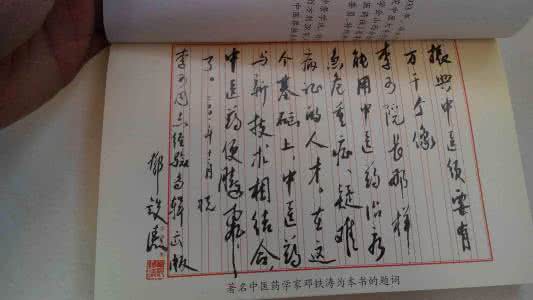 振兴中医须要有
万千个像
李可院长那样
能用中医药治疗
急危重症、疑难
病证的人才。在这
个基础上,中医药
与新技术相结合,
中医药便腾飞
了。
李可同志经验专辑出版
邓铁涛
著名中医药学家邓铁涛为本书的题词